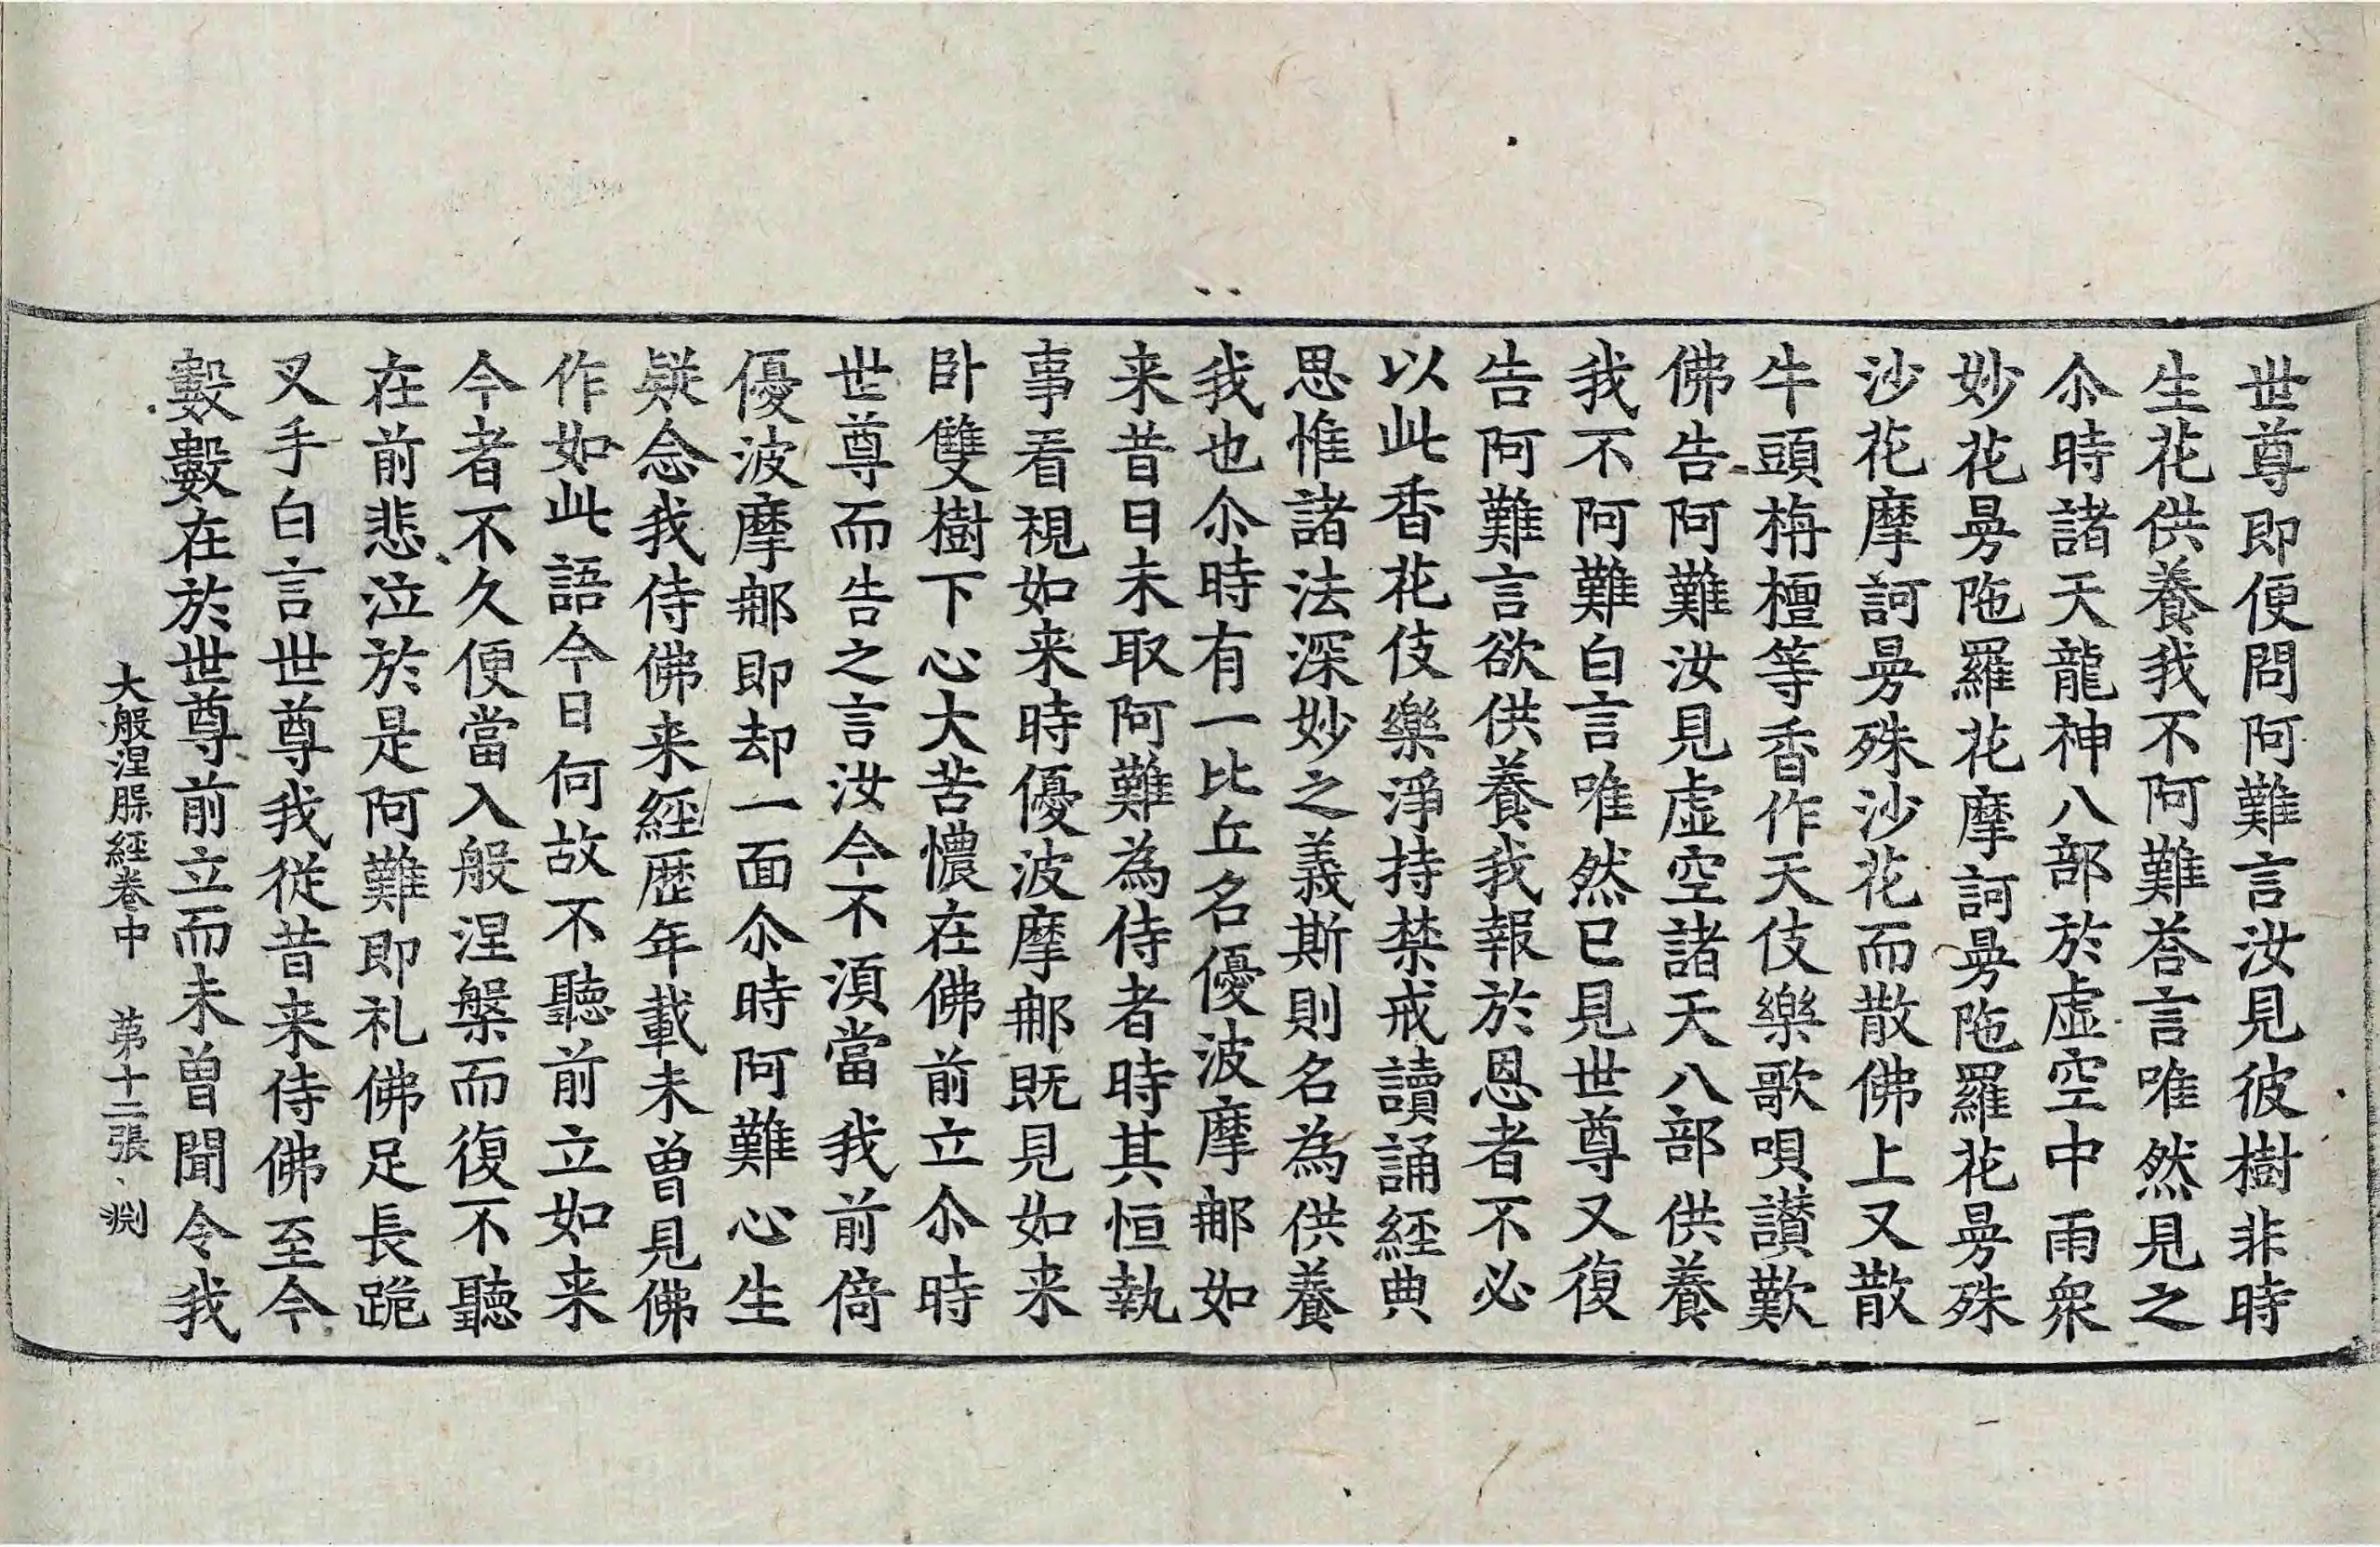 世尊即便問阿難言汝見彼樹非時
生花供養我不阿難荅言唯然見之
尒時諸天龍神八部於虛空中雨衆
妙花曼陁羅花摩訶曼陁羅花曼殊
沙花摩訶曼殊沙花而散佛上又散
牛頭栴檀等香作天伎樂歌唄讃歎
佛告阿難汝見虛空諸天八部供養
我不阿難白言唯然已見世尊又復
告阿難言欲供養我報於恩者不必
以此香花伎樂淨持禁戒讀誦經典
思惟諸法深妙之義斯則名為供養
我也尒時有一比丘名優波摩𨚗如
来昔日未取阿難為侍者時其恒執
事看視如来時優波摩𨚗既見如来
卧雙樹下心大苦懷在佛前立尒時
世尊而告之言汝今不湏當我前倚
優波摩𨚗即却一面尒時阿難心生
疑念我侍佛来經歷年載未曽見佛
作如此語今日何故不聽前立如来
今者不久便當入般涅槃而復不聽
在前悲泣於是阿難即礼佛足長跪
叉手白言世尊我從昔来侍佛至今
數數在於世尊前立而未曽聞令我
大般涅槃經卷中　第十二張　渕